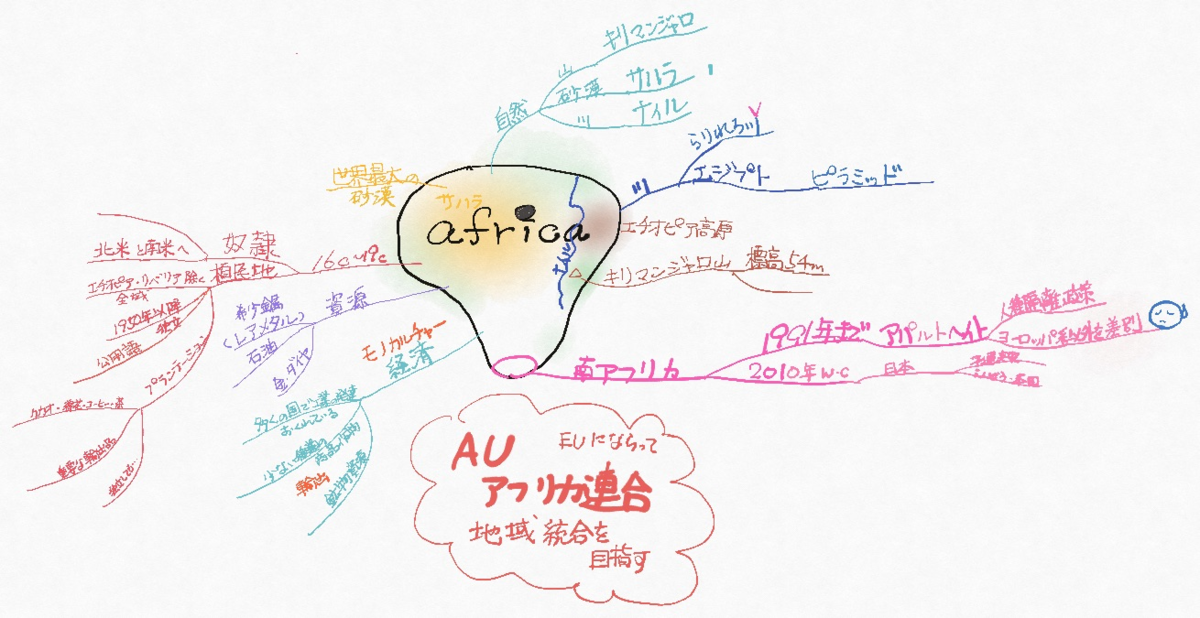 キリマンジャロ
山
砂漠 サハラ
川 ナイル
自然
世界最大の
砂漠
サハラ
africa
ナイル
川
エジプト ピラミッド
エチオピア高原
キリマンジャロ山 標高54m
奴隷
北米と南米へ
植民地
16c
19c
エチオピア・リベリア除く
全域
1950年以降
独立
公用語
プランテーション
カカオ・綿花・コーヒー・茶
重要な輸出品
資源
希少金属
(レアメタル)
石油
金ダイヤ
モノカルチャー
経済
多くの国で工業の発達
おくれている
少ない種類の
輸出
南アフリカ
1991年まで アパルトヘイト
人種隔離政策
ヨーロッパ系以外を差別
2010年W.C 日本
AU EUにならって
アフリカ連合
地域統合を
目指す